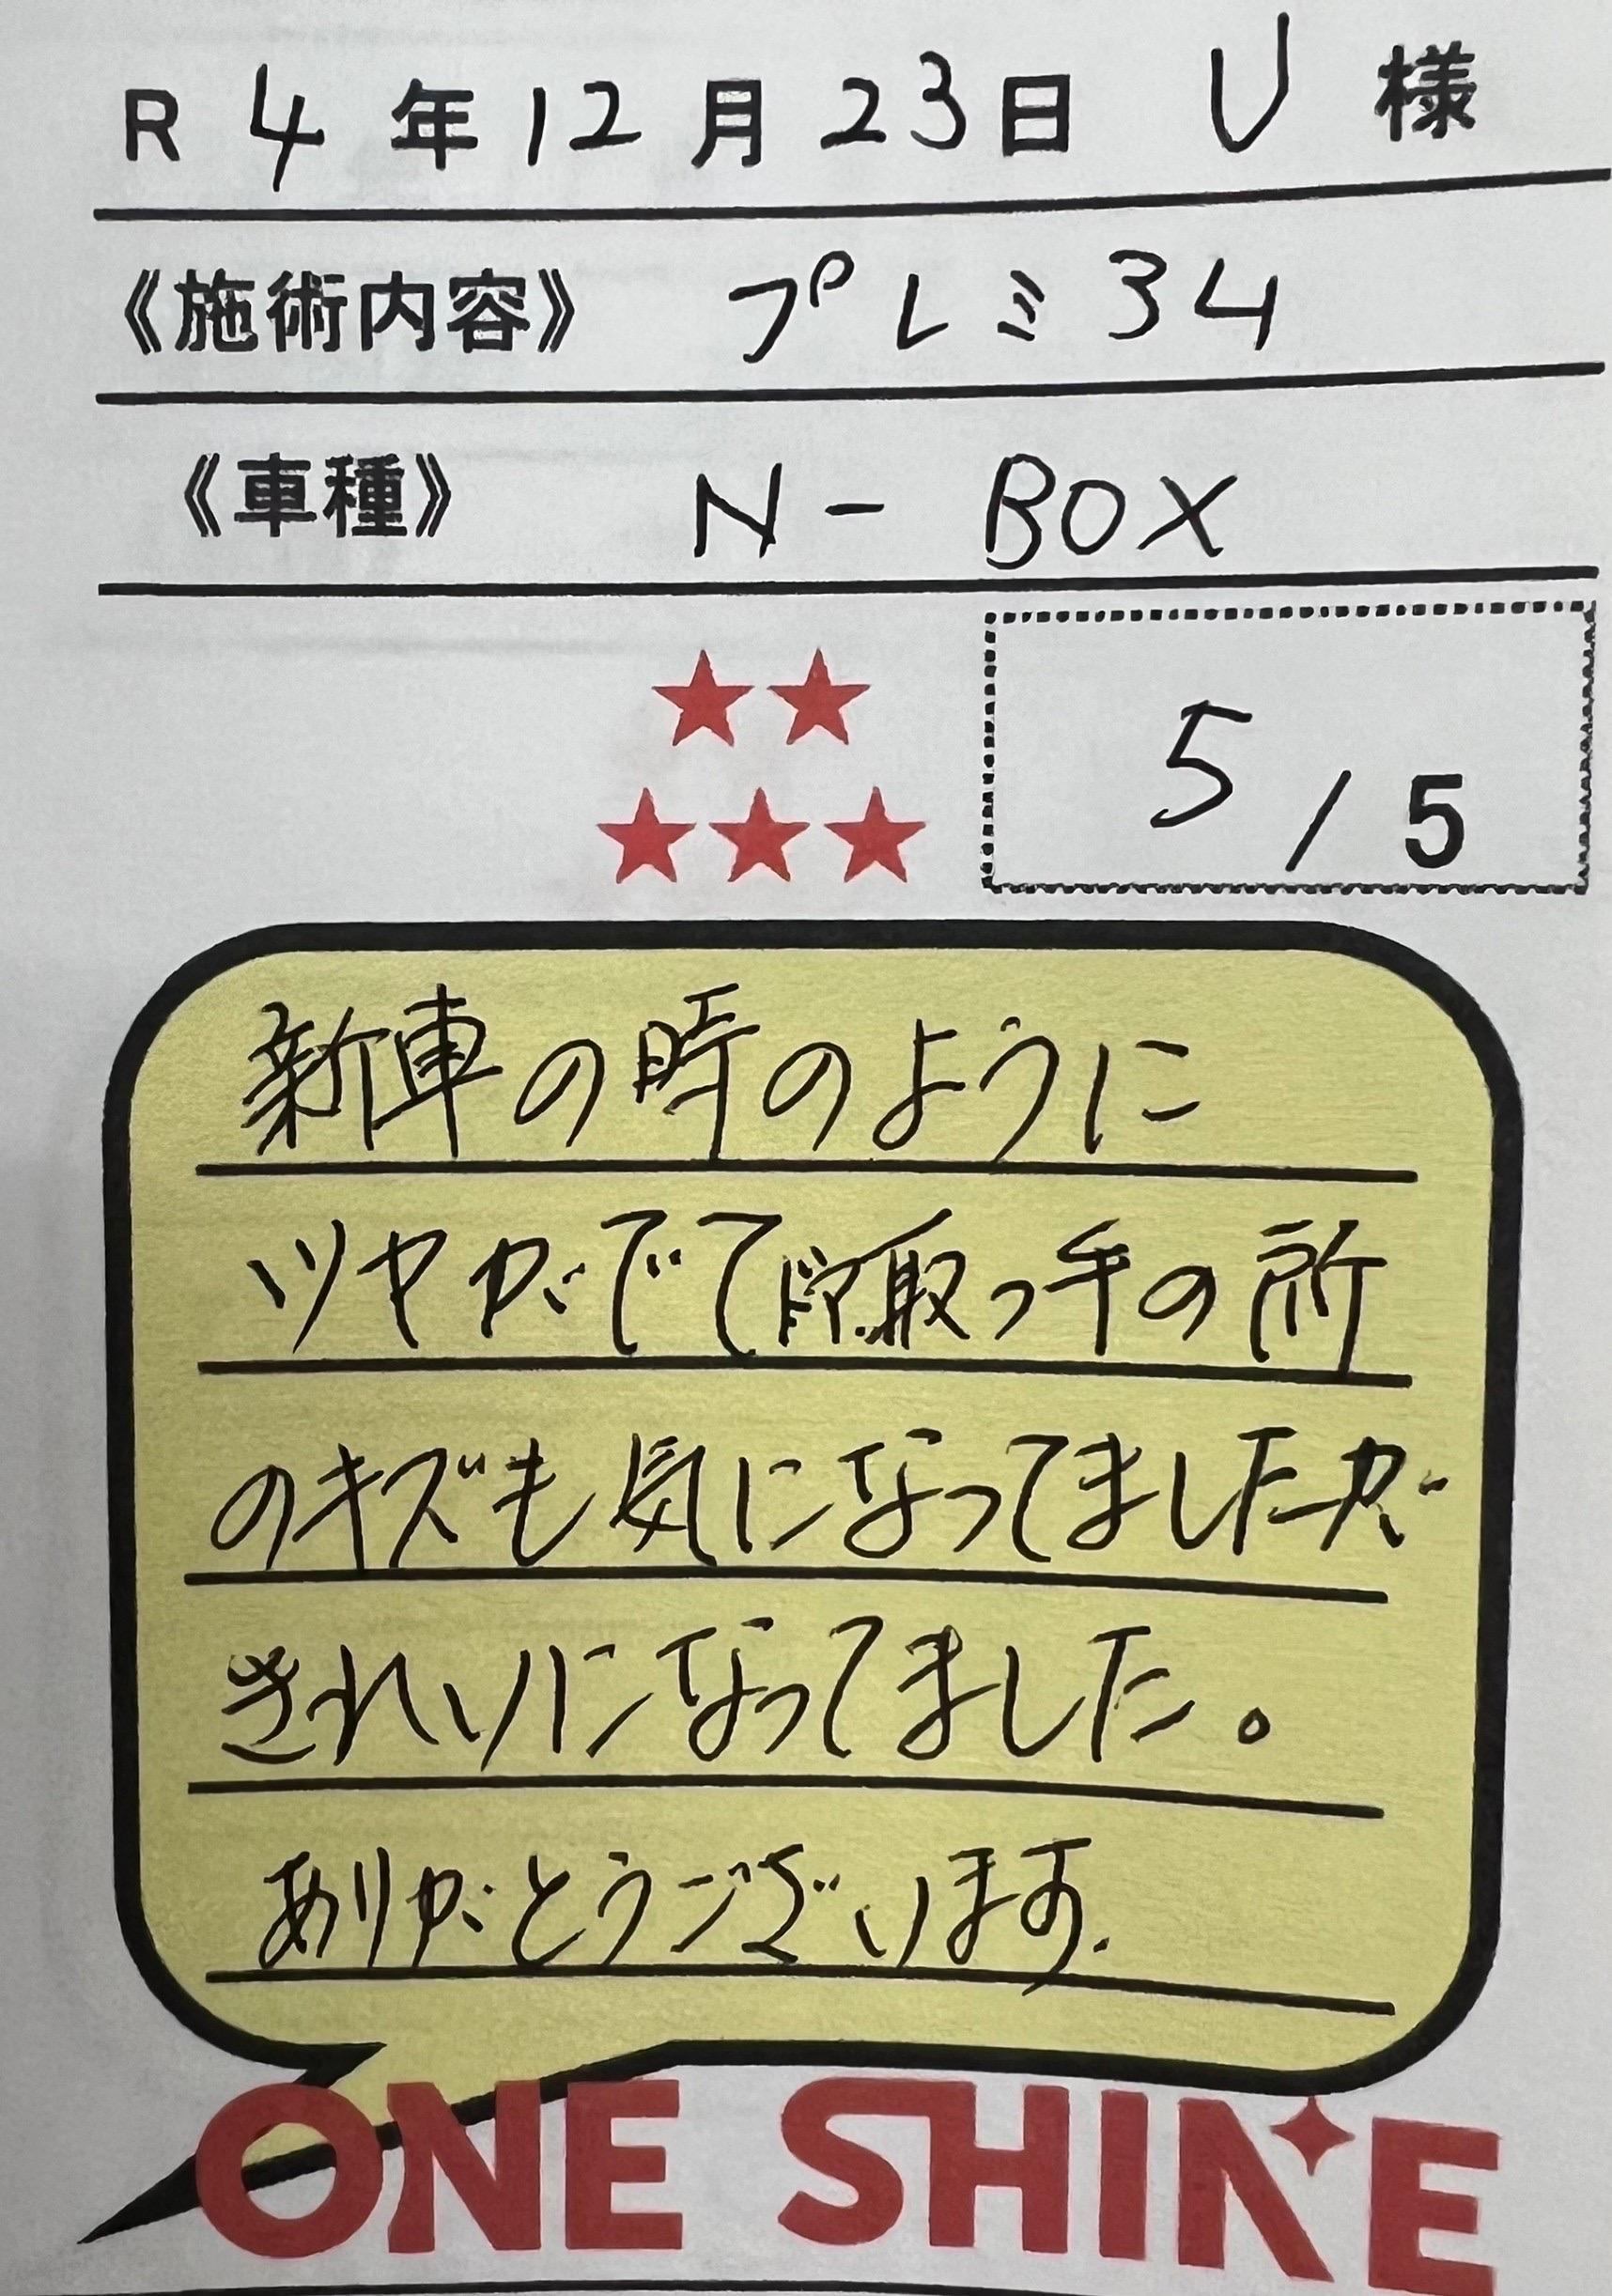 R 4年12月23日 U 様
《施術内容》 プレミ34
《車種》 N-BOX
5/5
新車の時のように
ツヤがでてドア取っ手の所
のキズも気になってましたが
きれいになってました。
ありがとうございます.
ONE SHINE